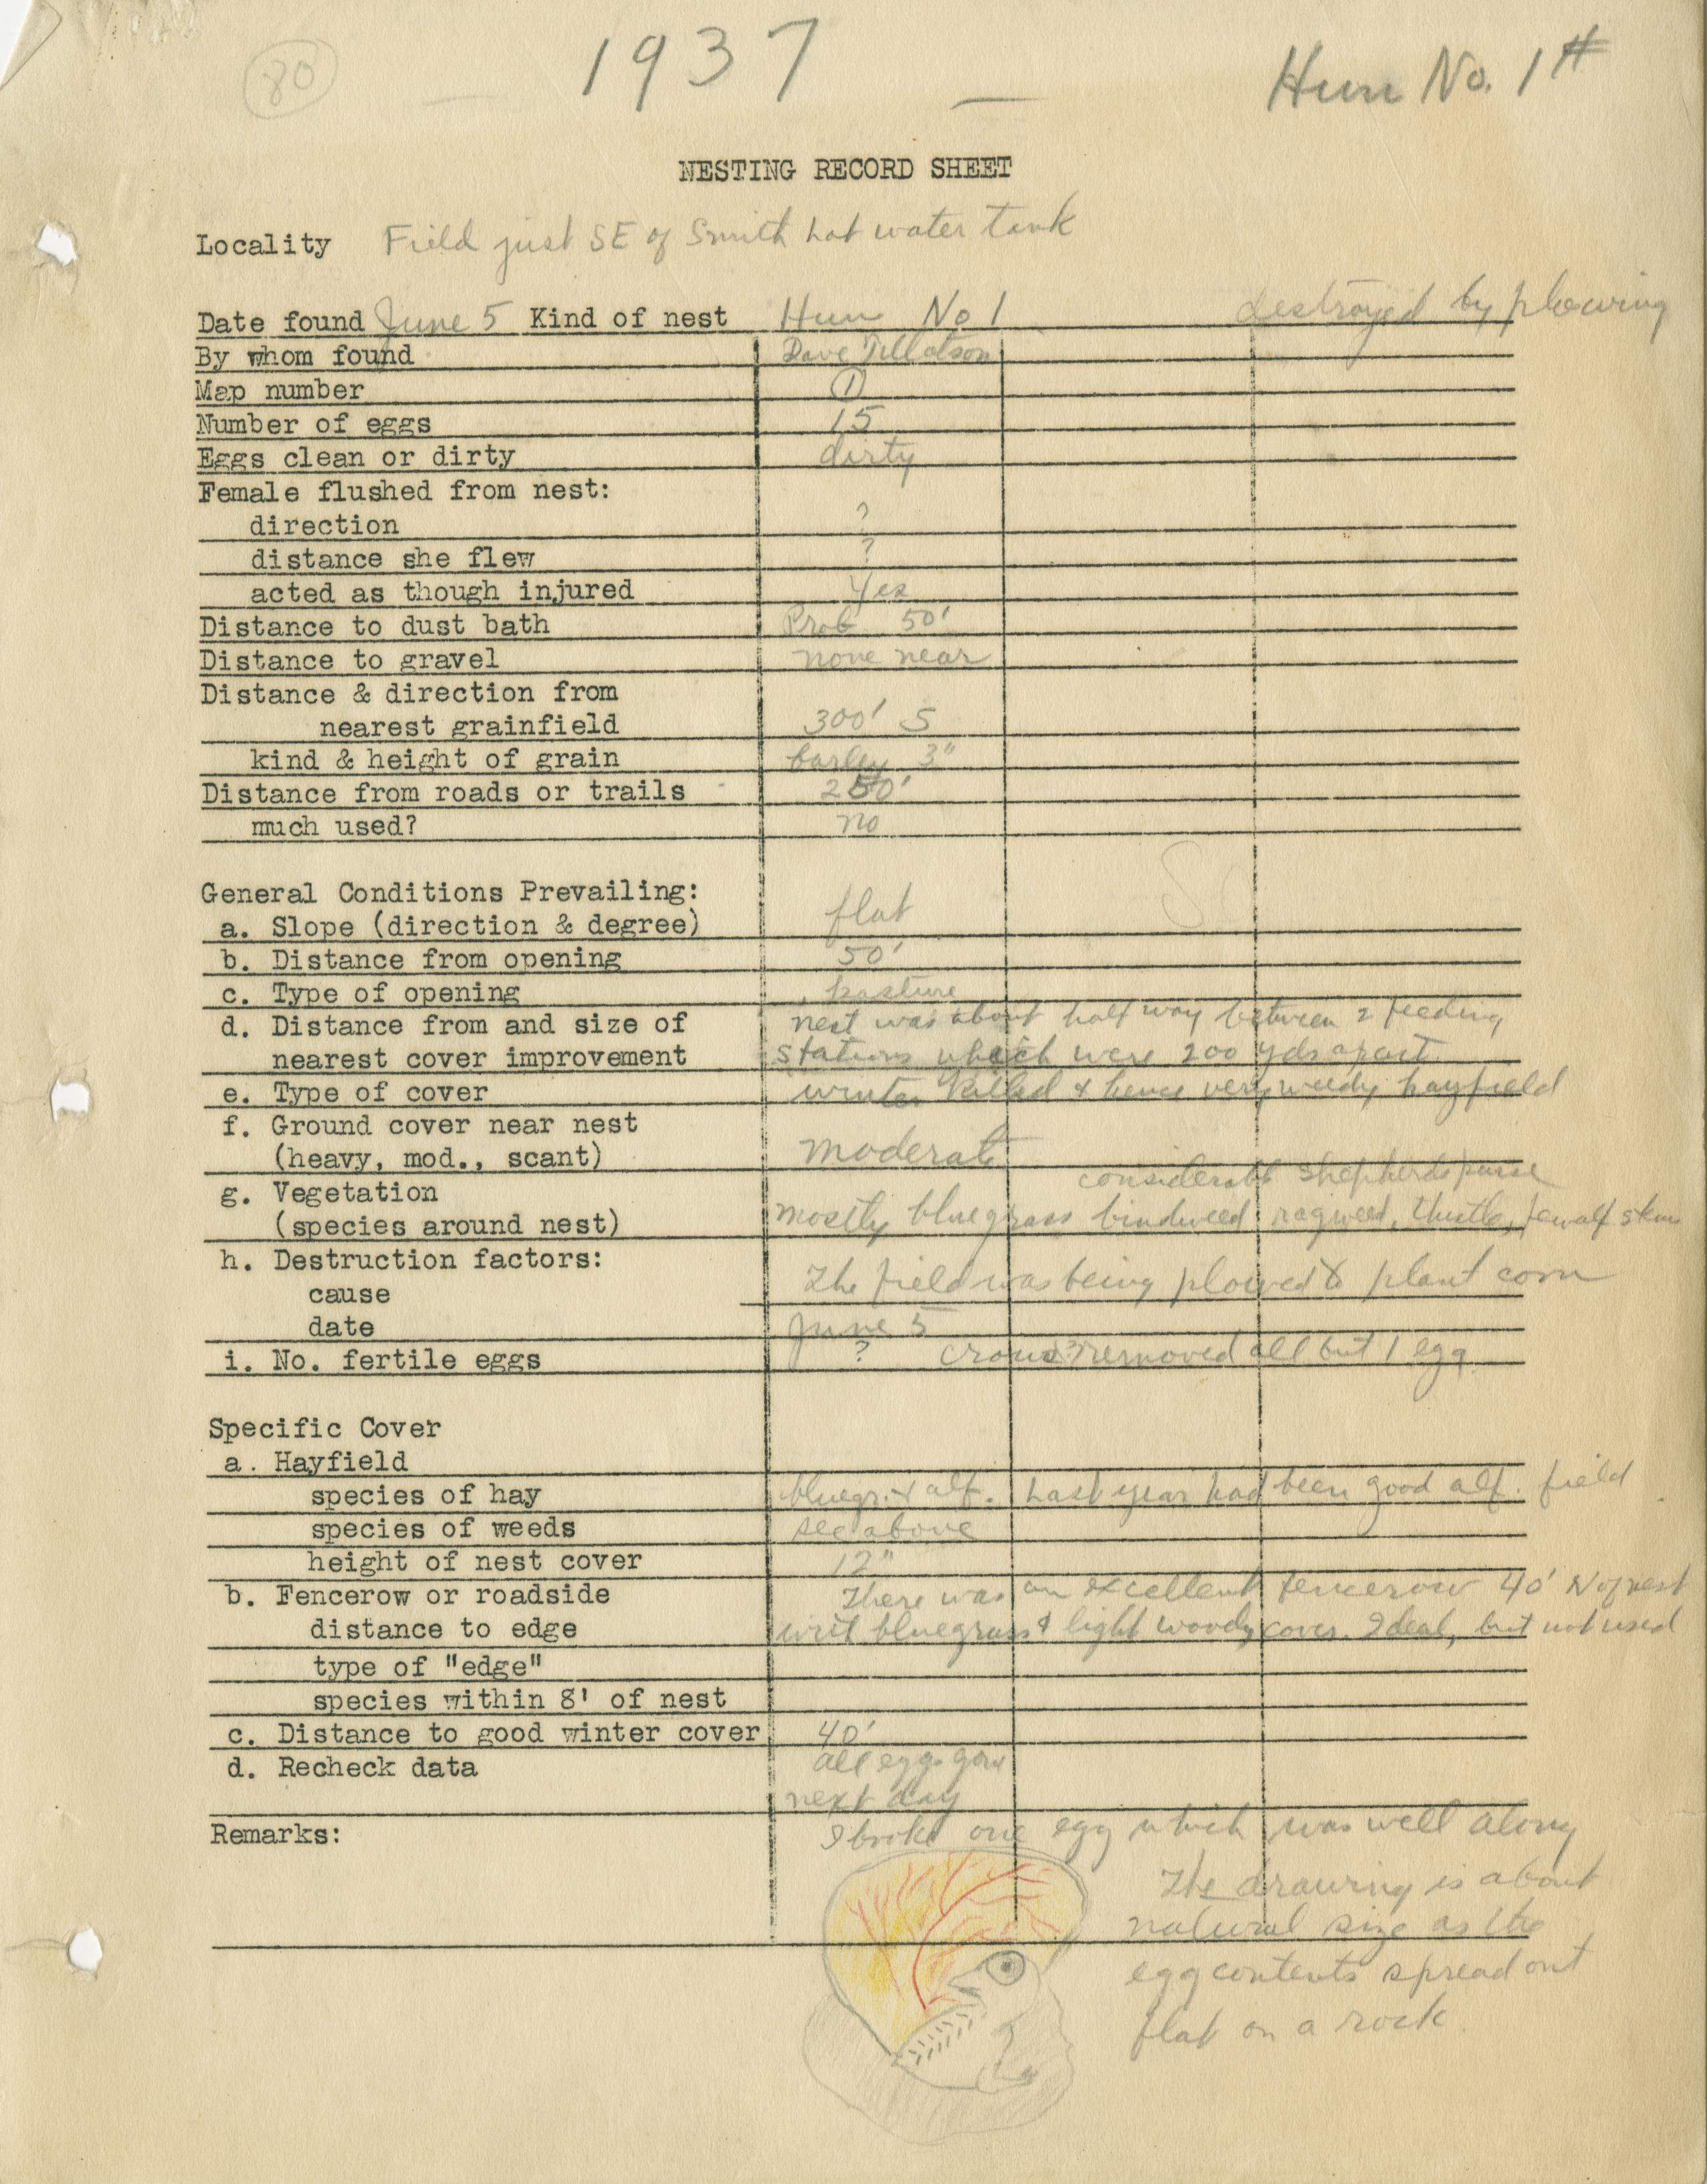 80
1937
Hun No. 1 #
NESTING RECORD SHEET
Locality Field just SE of Smith hot water tank
Date found June 5 Kind of nest Hun No 1 destroyed by plowing
By whom found Dave Tillotson
Map number 1
Number of eggs 15
Eggs clean or dirty dirty
Female flushed from nest:
direction ?
distance she flew ?
acted as though injured Yes
Distance to dust bath Prob 50'
Distance to gravel none near
Distance & direction from
nearest grainfield 300' S
kind & height of grain barley 3"
Distance from roads or trails 250'
much used? no
General Conditions Prevailing:
a. Slope (direction & degree) flat
b. Distance from opening 50'
c. Type of opening pasture
d. Distance from and size of nest was about half way between 2 feeding
nearest cover improvement stations which were 200 yds apart.
e. Type of cover winter killed & hence very weedy hayfield
f. Ground cover near nest
(heavy, mod., scant) moderate
considerable shepherds purse
g. Vegetation
(species around nest) mostly bluegrass bindweed ragweed, thistle, few alf stems
h. Destruction factors:
cause The field was being plowed to plant corn
date June 5
i. No. fertile eggs ? crows? removed all but 1 egg
Specific Cover
a. Hayfield
species of hay bluegr. & alf. Last year had been good alf. field
species of weeds see above
height of nest cover 12"
b. Fencerow or roadside There was an excellent fencerow 40' N of nest
distance to edge with bluegrass & light woody cover. Ideal, but not used
type of "edge"
species within 8' of nest
c. Distance to good winter cover 40'
d. Recheck data all eggs gone
next day
Remarks: I broke one egg which was well along
The drawing is about
natural size as the
egg contents spread out
flat on a rock.